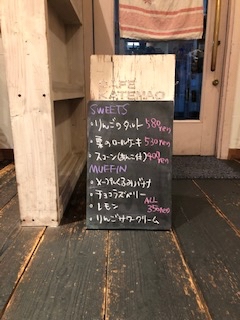 CAFE
KATEMAO
SWEETS
・りんごのタルト 580yen
・栗のロールケーキ 530yen
・スコーン(あんこ付) 400yen
MUFFIN
・メープルくるみバナナ
・チョコラズベリー
・レモン ALL
350yen
・りんごサワークリーム